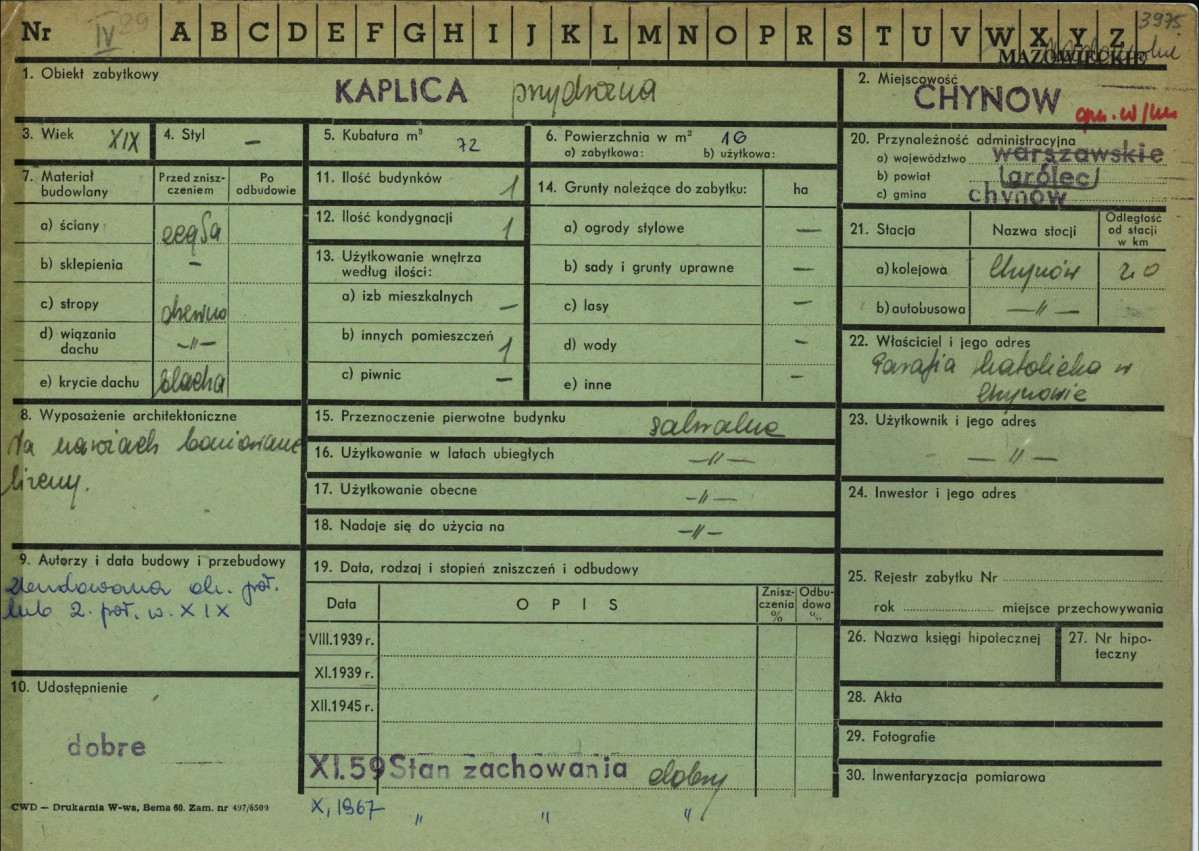 Nr IV 29 A B C D E F G H I J K L M N O P R S T U V W X Y Z 3975
MAZOWIECKIE
1. Obiekt zabytkowy
KAPLICA przydrożna
2. Miejscowość
CHYNOW
3. Wiek XIX
4. Styl —
5. Kubatura m³ 72
6. Powierzchnia w m² 16
a) zabytkowa: b) użytkowa:
7. Materiał budowlany
Przed znisz-
czeniem
Po
odbudowie
a) ściany cegła
b) sklepienia -
c) stropy drewno
d) wiązania
dachu -"-
e) krycie dachu blacha
8. Wyposażenie architektoniczne
Na narożach boniowane
lizeny.
9. Autorzy i data budowy i przebudowy
zbudowana ok. poł.
lub 2. poł. w. XIX
10. Udostępnienie
dobre
11. Ilość budynków 1
12. Ilość kondygnacji 1
13. Użytkowanie wnętrza
według ilości:
a) izb mieszkalnych —
b) innych pomieszczeń 1
c) piwnic —
14. Grunty należące do zabytku: ha
a) ogrody stylowe —
b) sady i grunty uprawne —
c) lasy —
d) wody -
e) inne -
15. Przeznaczenie pierwotne budynku sakralne
16. Użytkowanie w latach ubiegłych —"—
17. Użytkowanie obecne -"—
18. Nadaje się do użycia na —"-
19. Data, rodzaj i stopień zniszczeń i odbudowy
Data
O P I S
Znisz-
czenia
%
Odbu-
dowa
%
VIII.1939 r.
XI.1939 r.
XII.1945 r.
XI.59 Stan zachowania dobry
X, 1967 " " "
20. Przynależność administracyjna
a) województwo warszawskie
b) powiat grójec
c) gmina chynow
21. Stacja
Nazwa stacji
Odległość
od stacji
w km
a) kolejowa Chynów 2,0
b) autobusowa —"—
22. Właściciel i jego adres
Parafia katolicka w
Chynowie
23. Użytkownik i jego adres
— " —
24. Inwestor i jego adres
25. Rejestr zabytku Nr
rok miejsce przechowywania
26. Nazwa księgi hipotecznej
27. Nr hipo-
teczny
28. Akta
29. Fotografie
30. Inwentaryzacja pomiarowa
CWD — Drukarnia W-wa, Bema 60. Zam. nr 497/6509